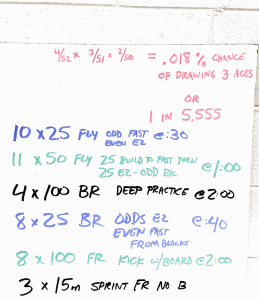 4/52 x 3/51 = 2/50 = .018 % CHANCE
OF DRAWING 3 ACES
OR
1 IN 5,555
10 x 25 FLY ODD FAST @ :30
EVEN EZ
11 x 50 FLY 25 BUILD TO FAST TURN @ 1:00
25 EZ - ODD BK
4 x 100 BR DEEP PRACTICE @ 2:00
8 x 25 BR ODDS EZ @ :40
EVEN FAST
FROM BLOCKS
8 x 100 FR KICK W/BOARD @ 2:00
3 x 15m SPRINT FR NO B